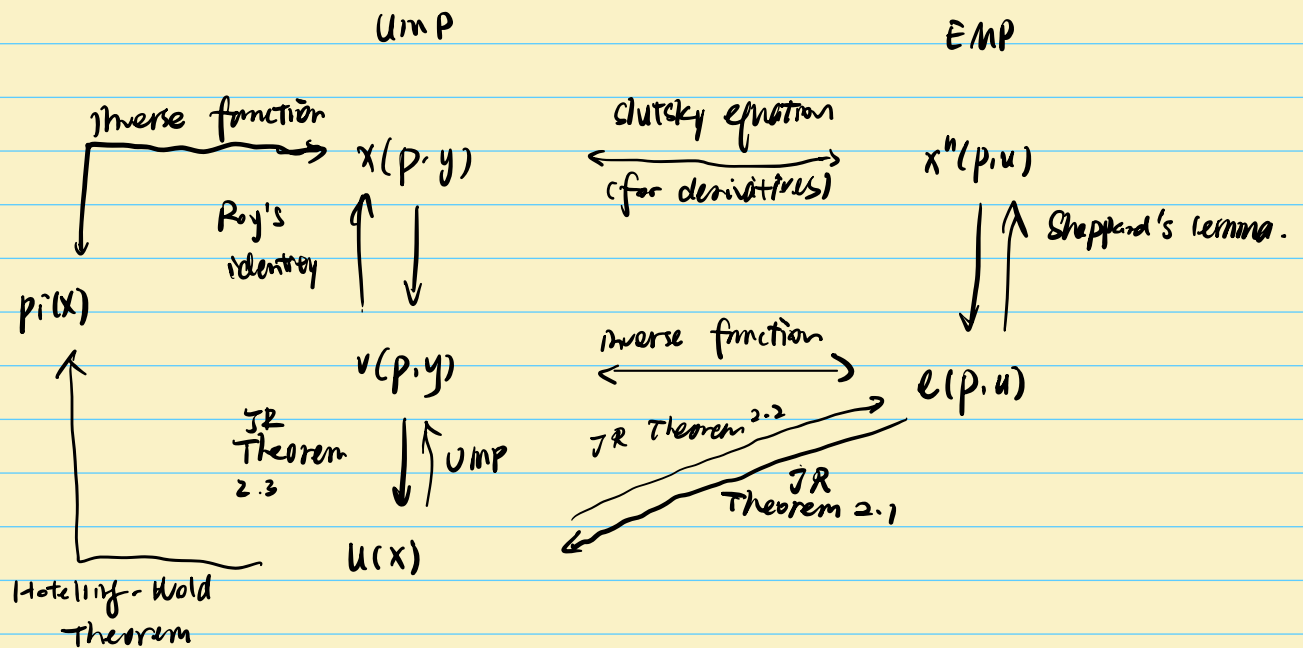 UMP
EMP
inverse function
slutsky equation
x(p.y)
xʰ(p,u)
(for derivatives)
Roy's
identity
Sheppard's lemma.
pi(x)
inverse function
v(p,y)
e(p,u)
JR
Theorem
2.3
UMP
JR Theorem 2.2
JR
Theorem 2.1
u(x)
Hotelling-Wold
Theorem